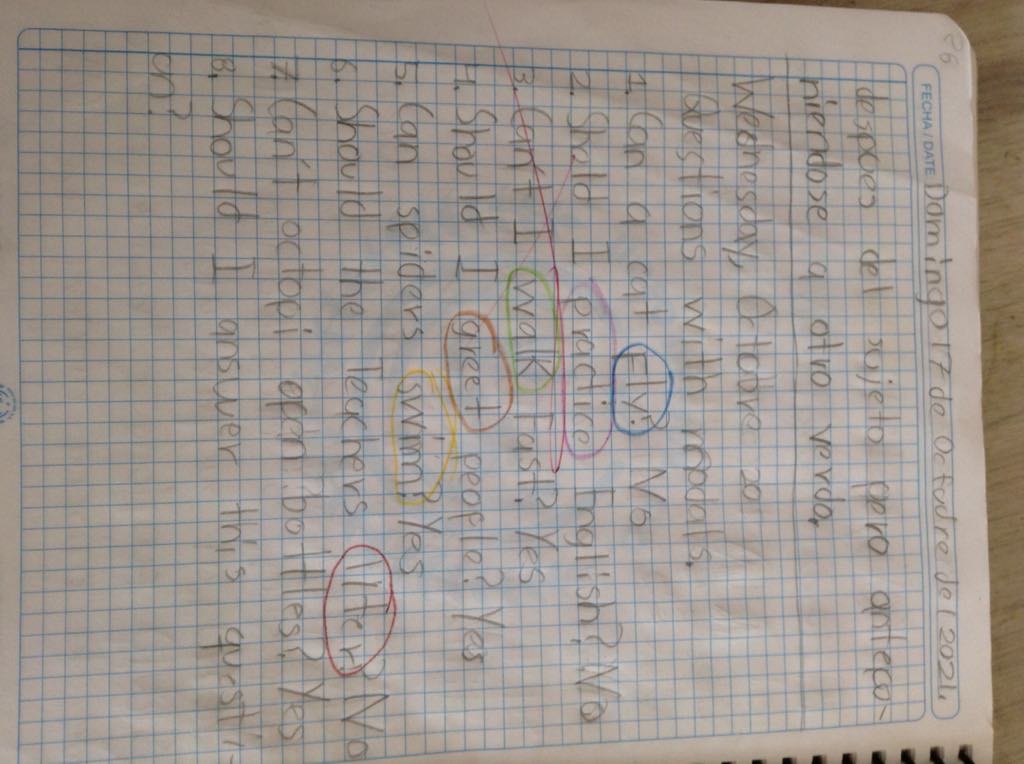 26
FECHA/DATE Domingo 17 de Octubre del 2021,
despues del sujeto pero antepo-
niendose a otro verbo,
Wednesday, Octobre 20
Questions with modals,
1. Can a cat Fly? No
2. Shuld I practice English? No
3. Can't I walk fast? Yes
4. Shuld I greet people? Yes
5. Can spiders swim? Yes
6. Should the Teachers litter? No
7. Can't octopi open botttles? Yes
8. Should I answer this questi-
on?